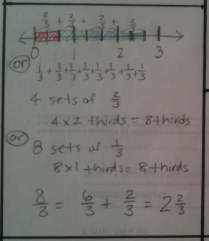 2/3 + 2/3 + 2/3 + 2/3
0 1 2 3
or
1/3 + 1/3 + 1/3 + 1/3 + 1/3 + 1/3 + 1/3 + 1/3
4 sets of 2/3
4 x 2 thirds = 8 thirds
or
8 sets of 1/3
8 x 1 thirds = 8 thirds
8/3 = 6/3 + 2/3 = 2 2/3